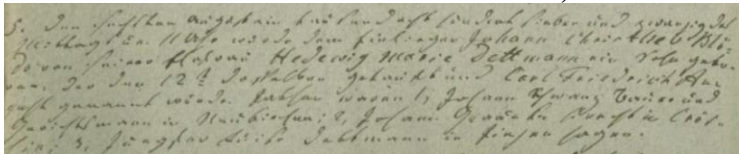 5. Den sechsten August ein tausend acht hundert sieben und zwanzig des
Mittags um 11 Uhr wurde dem Einlieger Johann Christlieb
von seiner Ehefrau Hedwig Marie Dettmann ein Sohn gebo-
ren, der den 12t desselben getauft und Carl Friedrich Au-
gust genannt wurde. Pathen waren 1, Johann Schwanz Bauer und
Gerichtsmann in 2, Johann Knecht in
3, Jungfer Dettmann in